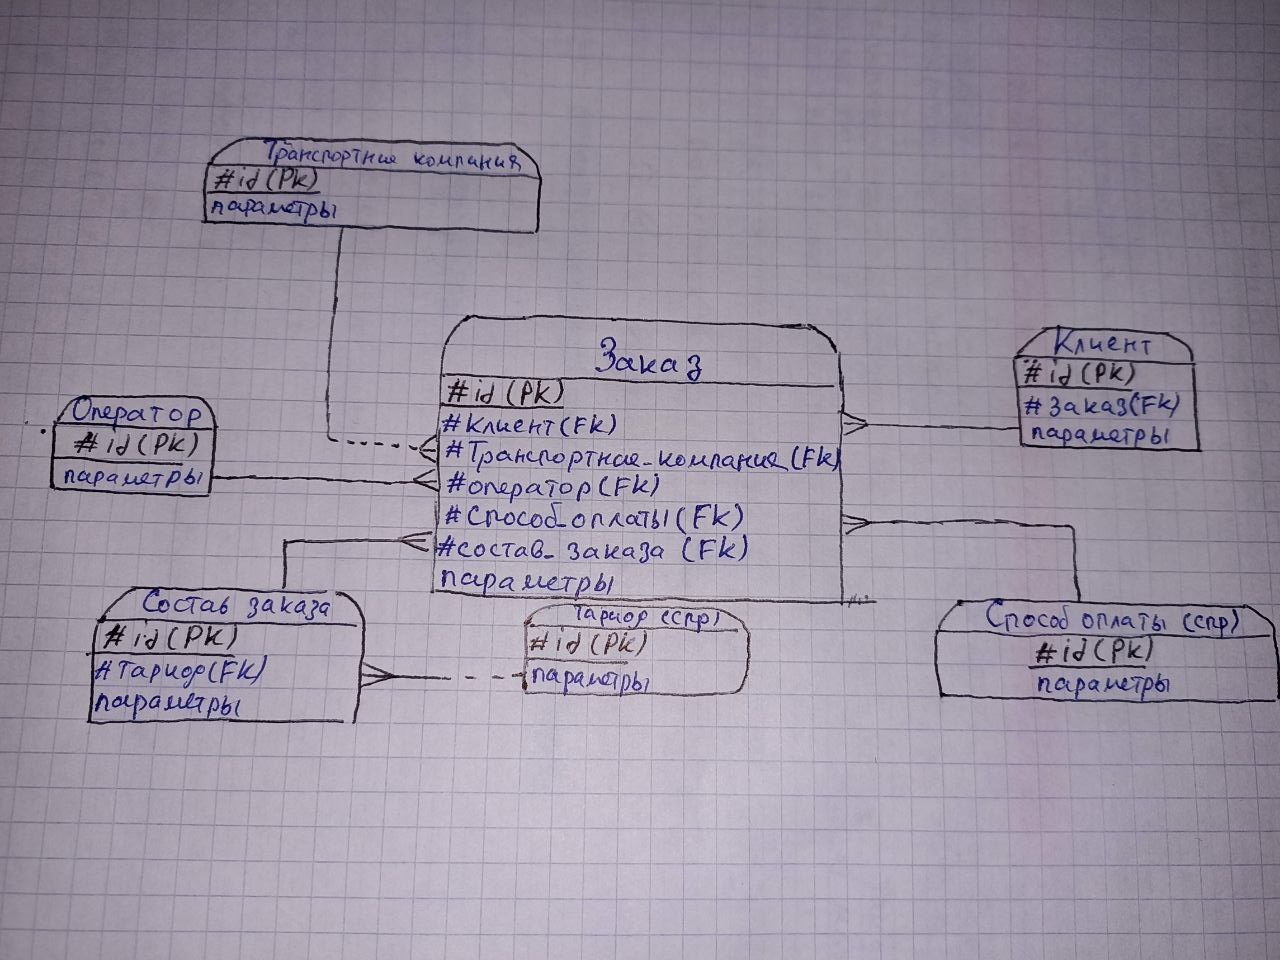 Транспортная компания
#id(PK)
параметры
Заказ
#id(PK)
#Клиент(FK)
#Транспортная_компания(FK)
#оператор(FK)
#Способ_оплаты(FK)
#состав_заказа (FK)
параметры
Клиент
#id(PK)
#Заказ(FK)
параметры
Оператор
#id(PK)
параметры
Состав заказа
#id(PK)
#Тариф(FK)
параметры
Тариф (спр)
#id(PK)
параметры
Способ оплаты (спр)
#id(PK)
параметры